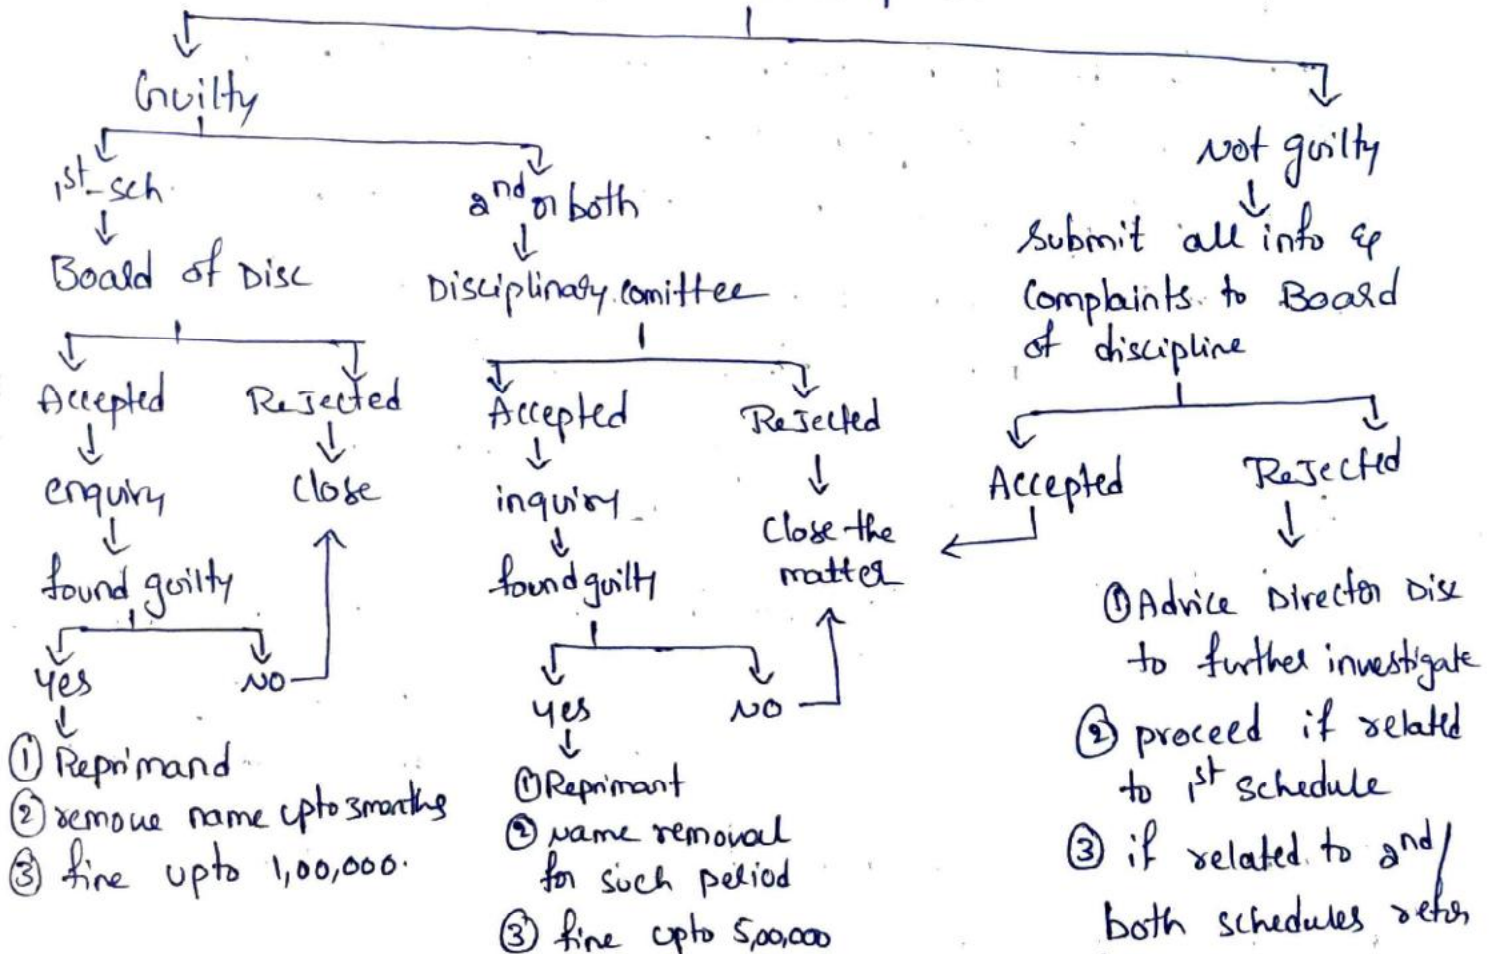 Guilty
1st sch.
Board of Disc
Accepted
Rejected
enquiry
close
found guilty
yes
NO
① Reprimand
② remove name upto 3 months
③ fine upto 1,00,000.
2nd or both
Disciplinary comittee
Accepted
Rejected
inquiry
Close the
matter
found guilty
yes
NO
① Reprimant
② Name removal
for such period
③ fine upto 5,00,000
Not guilty
Submit all info &
Complaints to Board
of discipline
Accepted
Rejected
① Advice Director Disc
to further investigate
② proceed if related
to 1st schedule
③ if related to 2nd/
both schedules refer